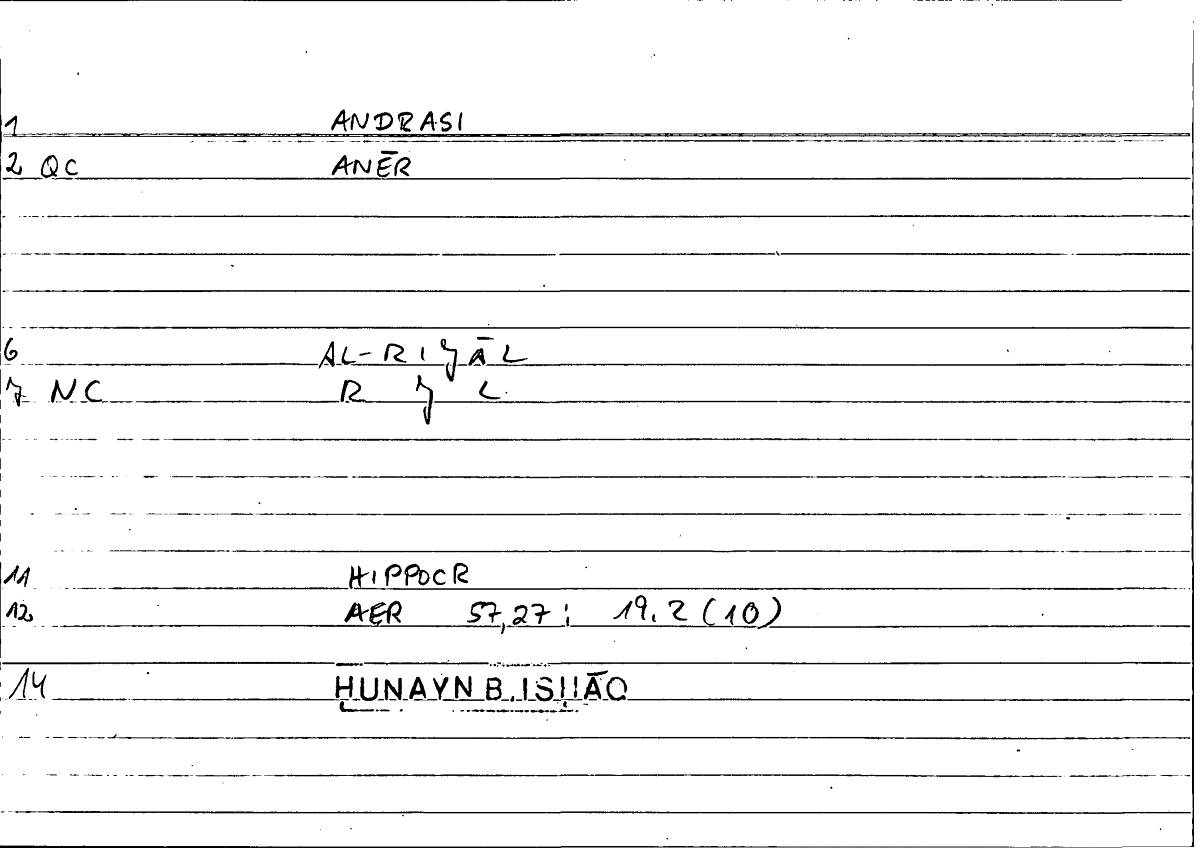 1 ANDRASI
2 QC ANĒR
6 AL-RIǧĀL
7 NC R ǧ L
11 HIPPOCR
12 AER 57,27; 19.2 (10)
14 ḤUNAYN B. ISḤĀQ